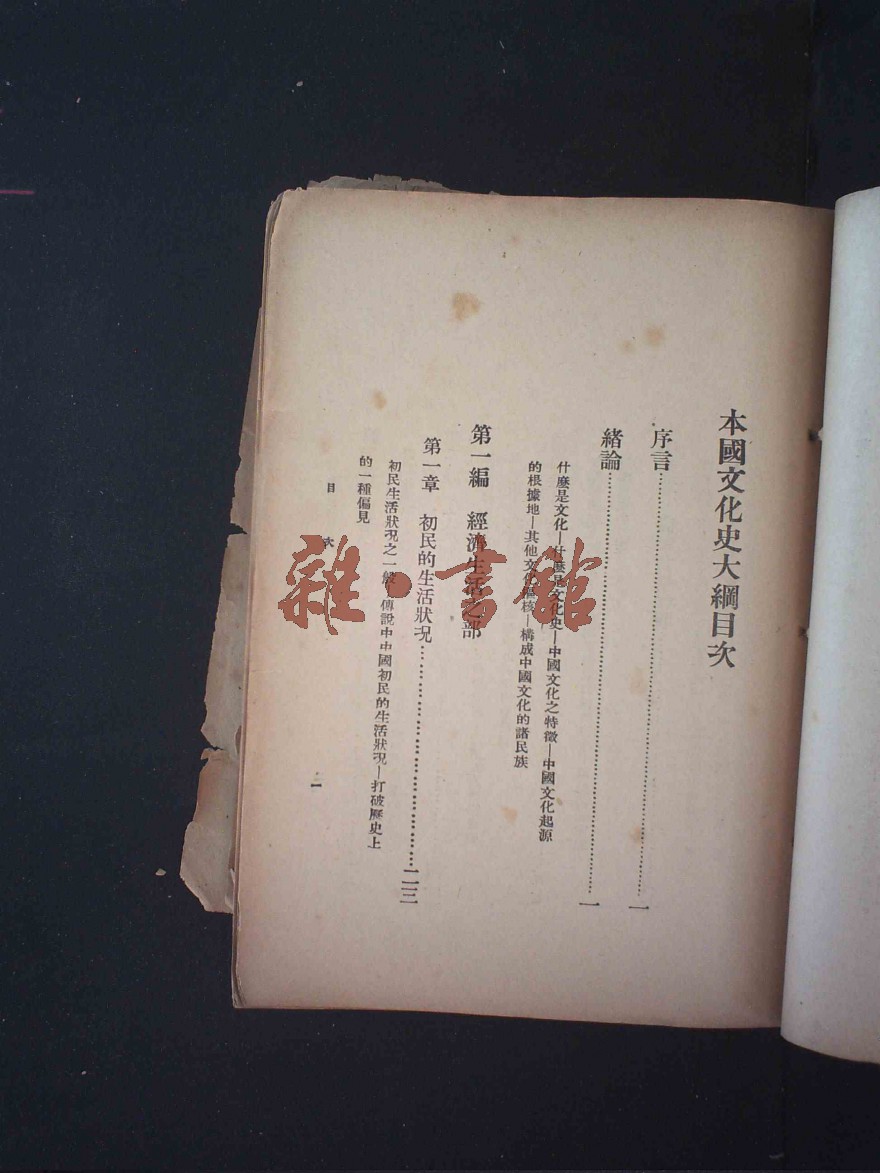 本國文化史大綱目次
序言……………………一
緒論……………………一
什麼是文化—什麼是文化史—中國文化之特徵—中國文化起源
的根據地—其他文化 核—構成中國文化的諸民族
第一編 經濟生活之部
第一章 初民的生活狀況……………………二三
初民生活狀況之一般—傳說中中國初民的生活狀況—打破歷史上
的一種偏見
目次
一
雜·書館